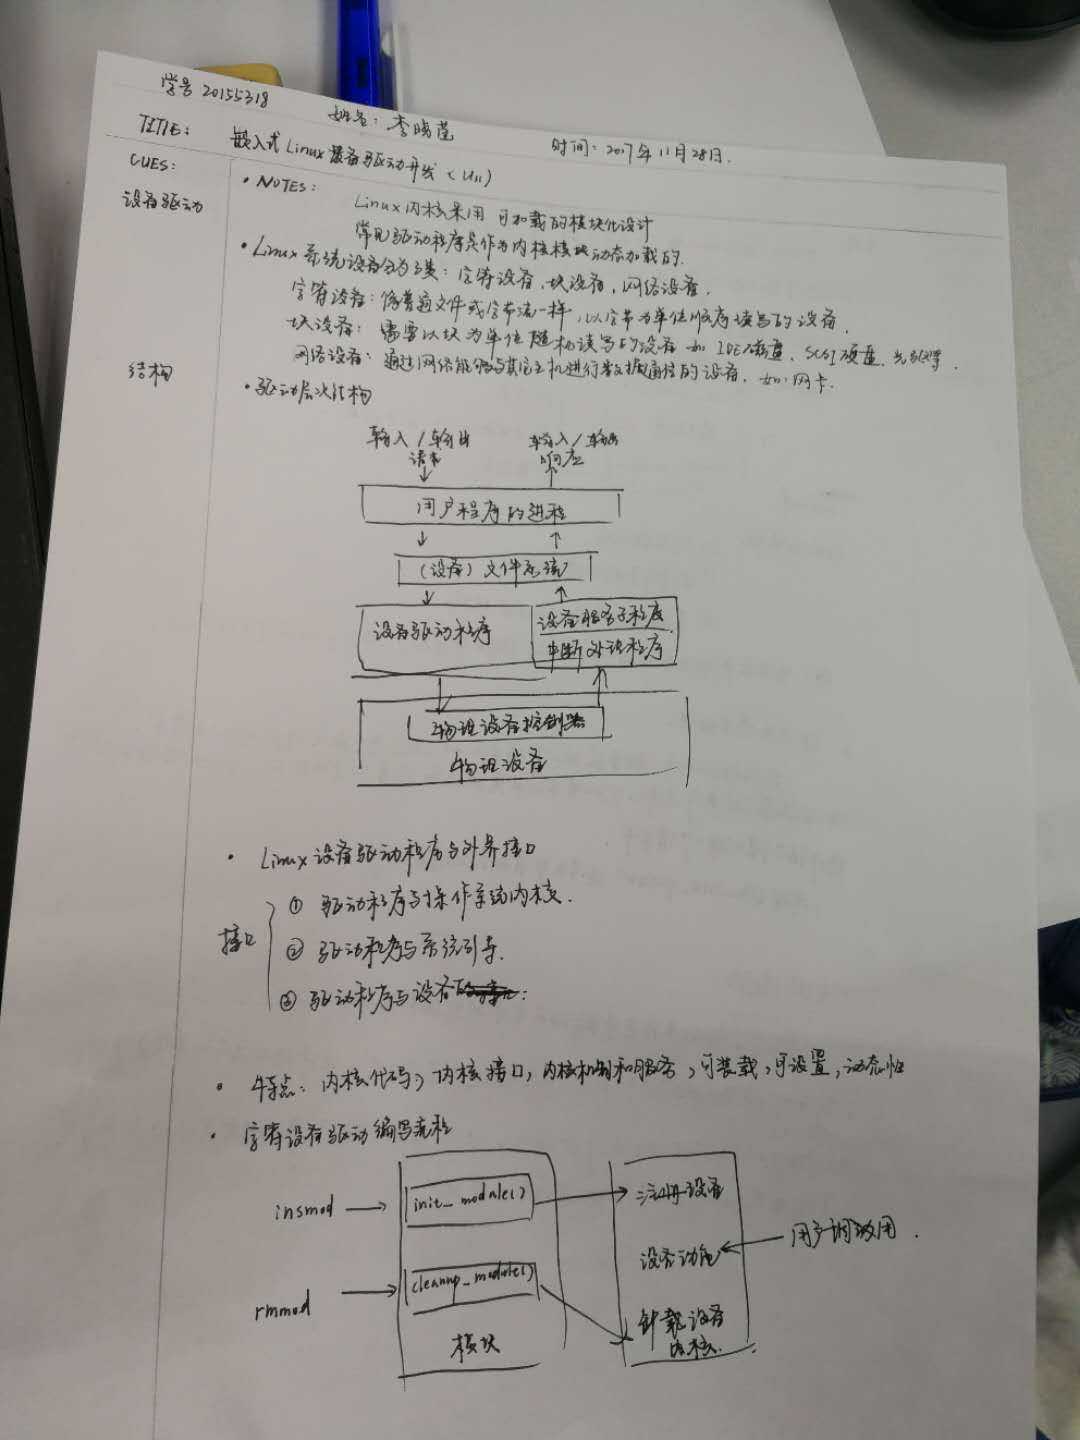 学号 20155318
姓名：李晓莲
时间：2017年11月28日.
TITLE：
嵌入式Linux设备驱动开发（U11）
CUES：
• NOTES：
设备驱动
Linux内核采用 可加载的模块化设计
常见驱动程序是作为内核模块动态加载的.
• Linux系统设备分为3类：字符设备，块设备，网络设备.
字符设备：像普通文件或字节流一样，以字节为单位顺序读写的设备.
块设备：需要以块为单位随机读写的设备 如IDE硬盘、SCSI硬盘、光驱等.
网络设备：通过网络能够与其它主机进行数据通信的设备，如：网卡.
结构
• 驱动层次结构
输入/输出 请求
输入/输出 响应
用户程序的进程
（设备）文件系统
设备驱动程序
设备服务子程序
中断处理程序
物理设备控制器
物理设备
• Linux设备驱动程序与外界接口
接口
① 驱动程序与操作系统内核.
② 驱动程序与系统引导.
③ 驱动程序与设备
• 特点：内核代码，内核接口，内核机制和服务，可装载，可设置，动态性
• 字符设备驱动编写流程
insmod
init_module()
注册设备
设备功能
用户调用.
rmmod
cleanup_module()
卸载设备
内核.
模块